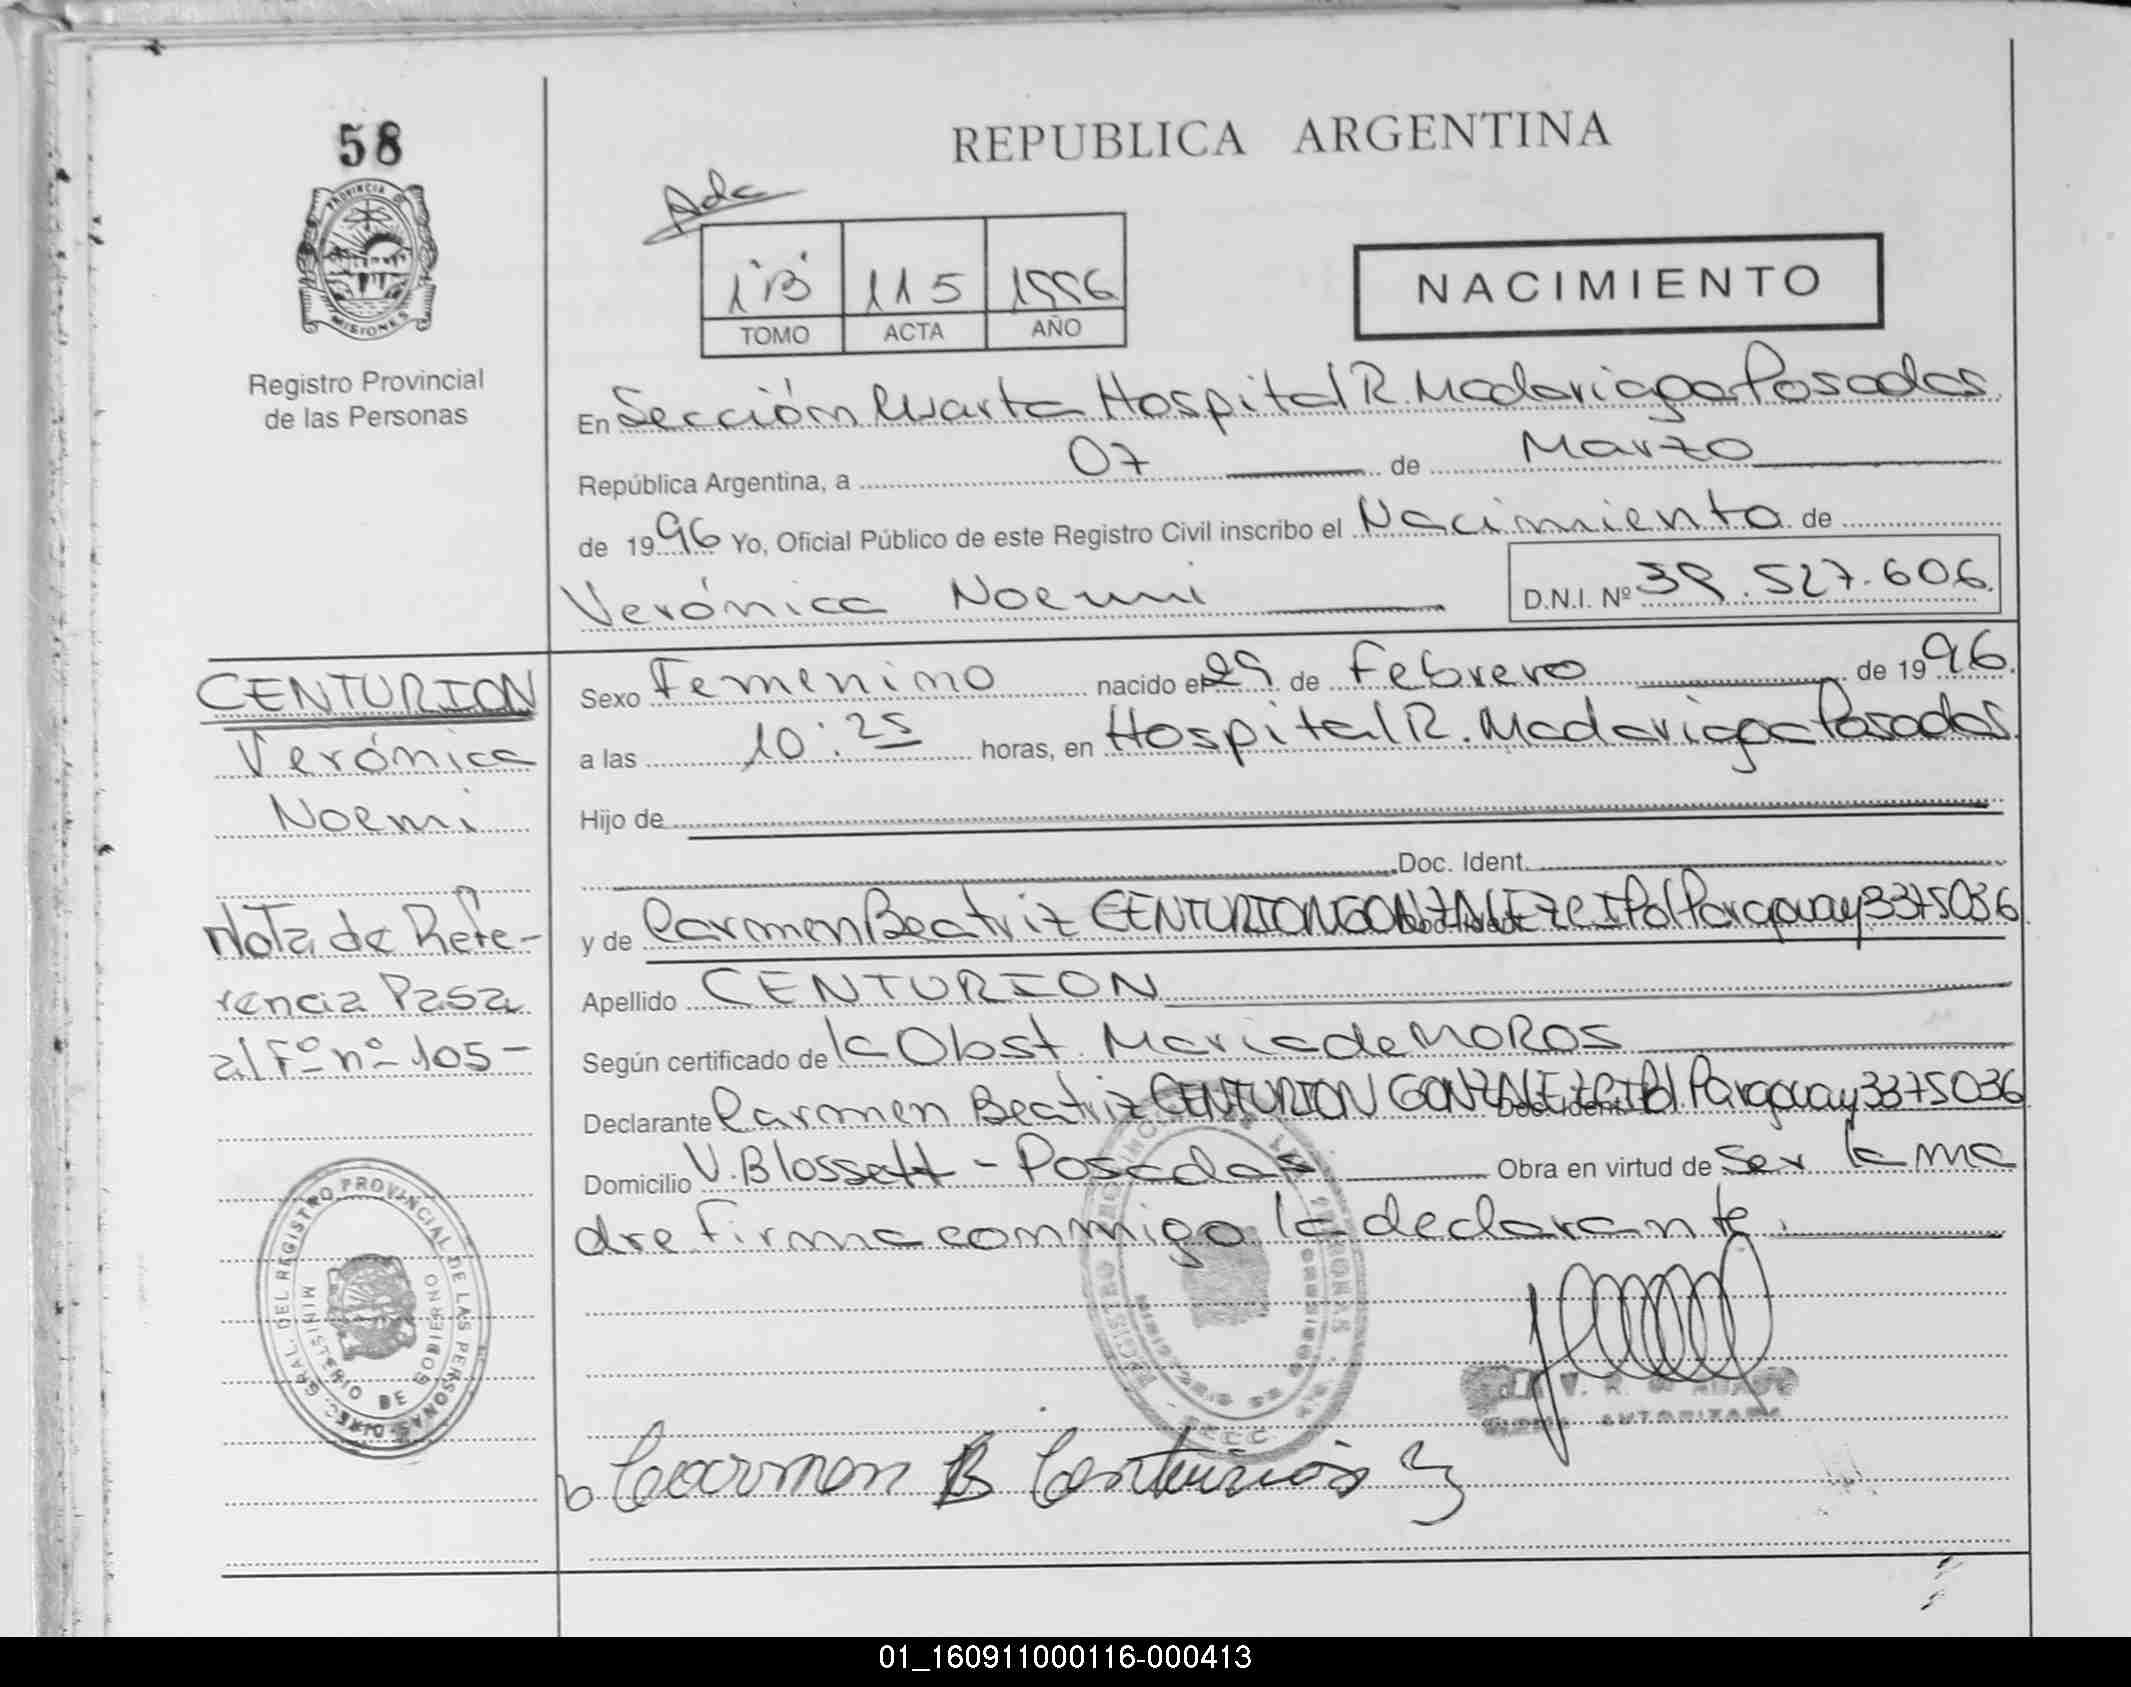 58
REPUBLICA ARGENTINA
PROVINCIA DE
MISIONES
Registro Provincial
de las Personas
Ada
1 "B" 115 1996
TOMO ACTA AÑO
NACIMIENTO
En Sección Cuarta Hospital R. Madariaga Posadas
República Argentina, a 07 de Marzo
de 1996 Yo, Oficial Público de este Registro Civil inscribo el Nacimiento de
Verónica Noemi D.N.I. Nº 39.527.606
CENTURION
Verónica
Noemi
Nota de Refe-
rencia Pasa
al Fº nº 105-
Sexo Femenino nacido el 29 de Febrero de 1996.
a las 10:25 horas, en Hospital R. Madariaga Posadas
Hijo de
Doc. Ident.
y de Carmen Beatriz CENTURION GONZALEZ CI Pol Paraguay 3375036
Apellido CENTURION
Según certificado de la Obst. Maria de MOROS
Declarante Carmen Beatriz CENTURION GONZALEZ CI Pol. Paraguay 3375036
Domicilio V. Blossett - Posadas Obra en virtud de ser la ma
dre firma conmigo la declarante.
DEL REGISTRO PROVINCIAL DE LAS PERSONAS
MINISTERIO DE GOBIERNO
AUTORIZADA
Carmen B Centurión
01_160911000116-000413